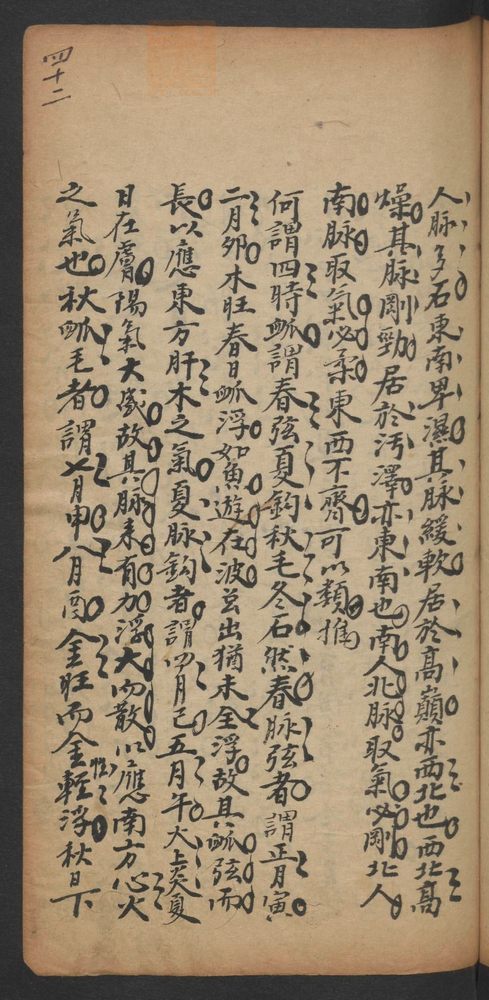 四十二
人脉多石東南卑濕其脉緩軟居於高巔亦西北也西北高
燥其脉剛勁居於污澤亦東南也南人北脉取氣必剛北人
南脉取氣必柔東西不齊可以類推
何謂四時脈謂春弦夏鈎秋毛冬石然春脉弦者謂正月寅
二月卯木旺春日脈浮如魚遊在波并出猶未全浮故其脈弦而
長以應東方肝木之氣夏脉鈎者謂四月巳五月午火上炎夏
日在膚陽氣大盛故其脉来有力浮大而散以應南方心火
之氣也秋脈毛者謂七月申八月酉金旺而金性輕浮秋日下